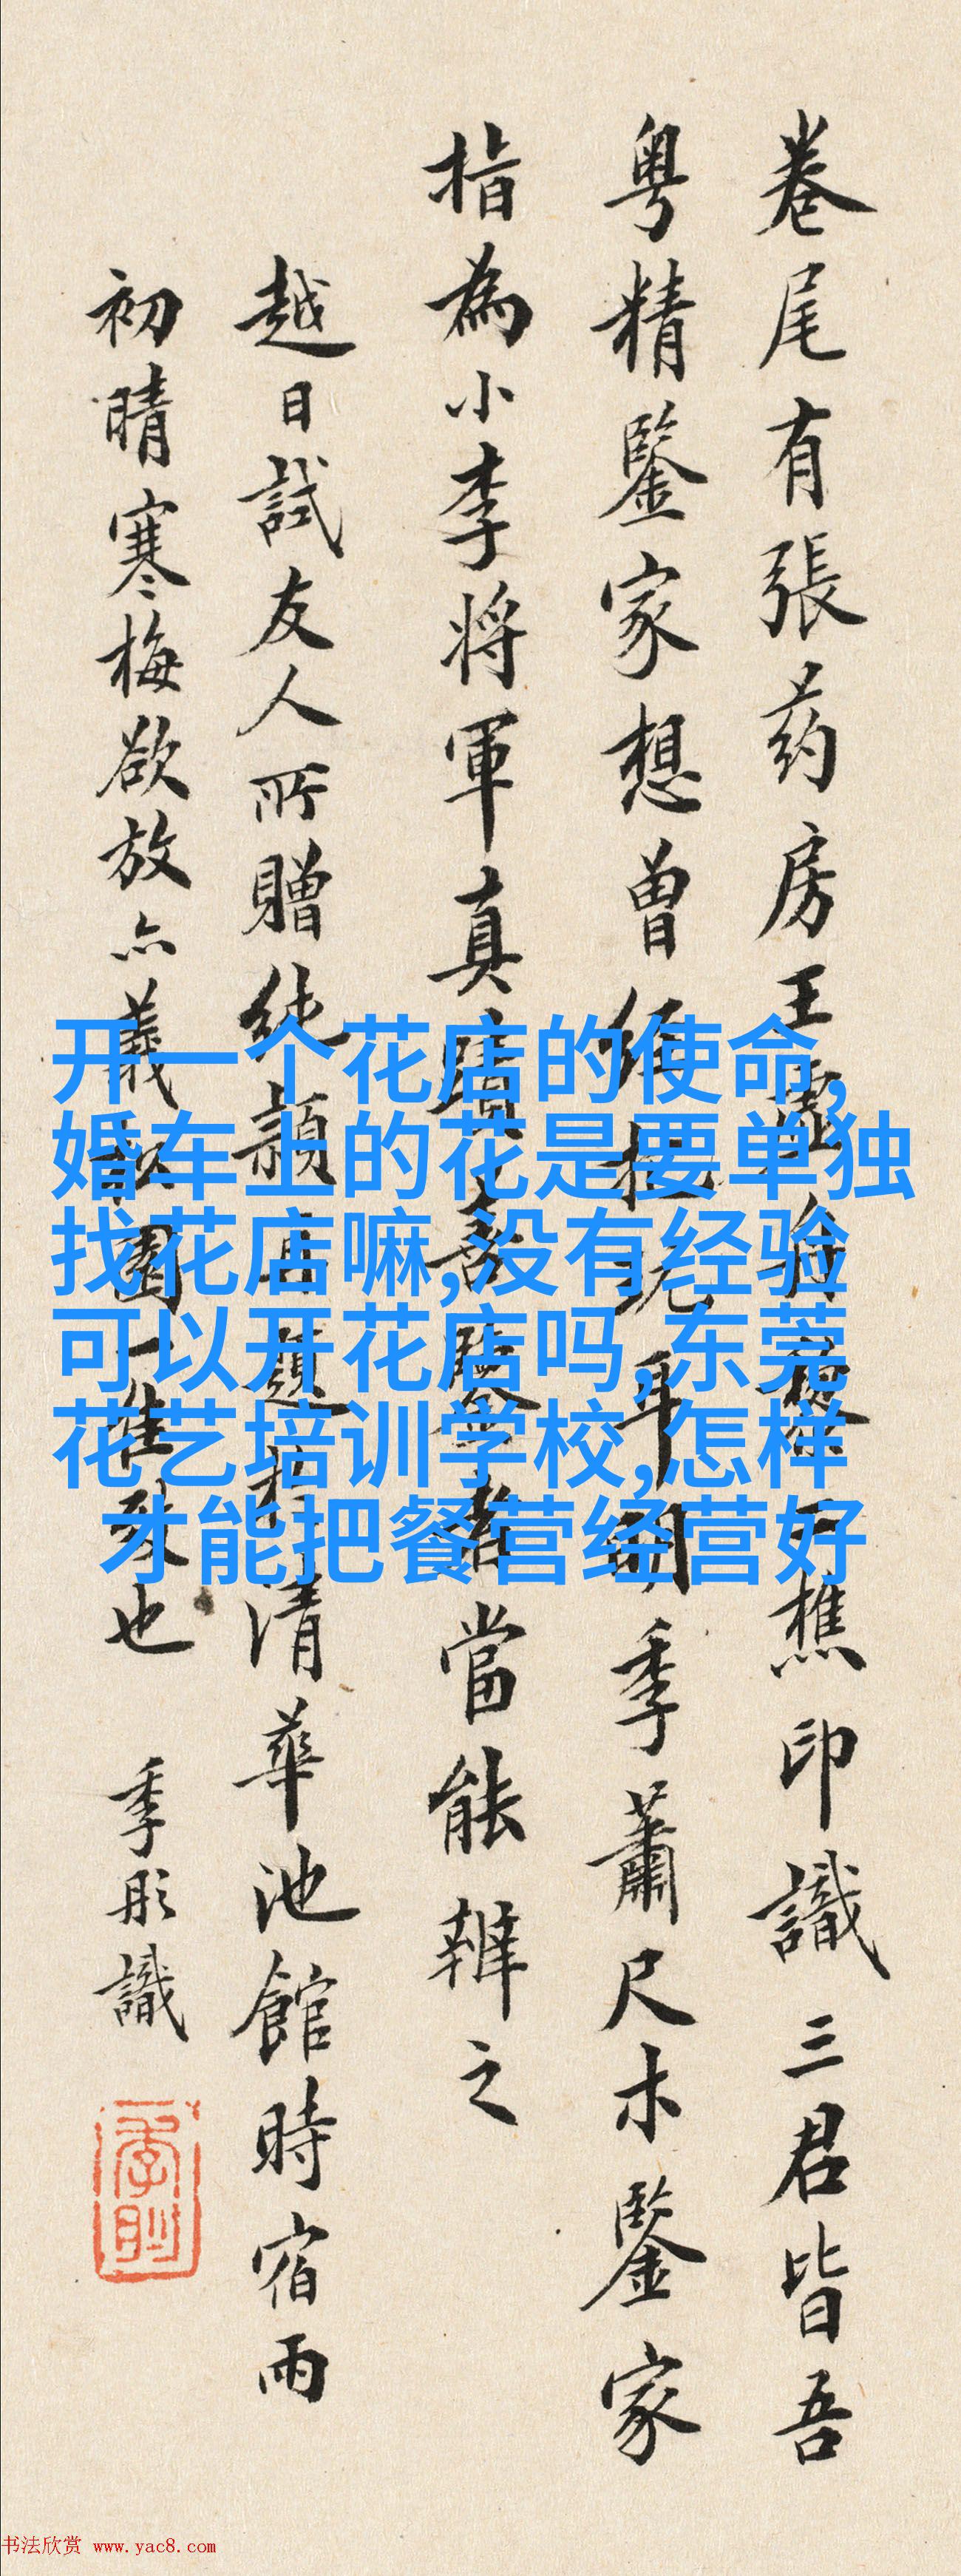 卷尾有張药房王樵印識三君皆吾
粤精鑒家想曾經季蕭尺木鑒家
指為小李將軍真蹟鑒者當能辨之
越日試友人所贈純穎題清華池館時宿雨
初晴寒梅欲放亦義園一佳也 季彤識
开一个花店的使命,
婚车上的花是要单独
找花店嘛,没有经验
可以开花店吗,东莞
花艺培训学校,怎样
才能把餐营经营好
书法欣赏 www.yac8.com